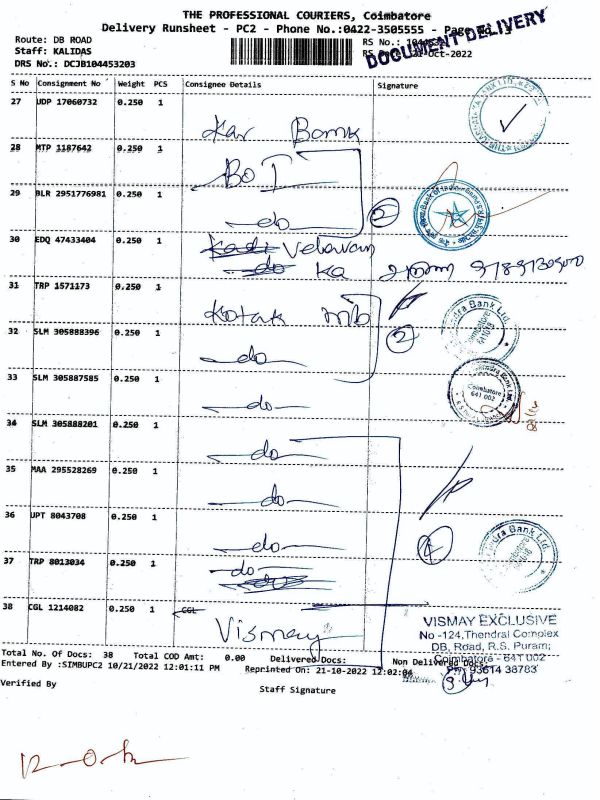 THE PROFESSIONAL COURIERS, Coimbatore
Delivery Runsheet - PC2 - Phone No.:0422-3505555 - Page No.
Route: DB ROAD
Staff: KALIDAS
DRS No.: DCJB104453203
RS No.:
Oct-2022
DOCUMENT DELIVERY
S No Consignment No Weight PCS Consignee Details Signature
27 UDP 17060732 0.250 1
Kar Bank
28 MTP 1187642 0.250 1
BOI
29 BLR 2951776981 0.250 1
do
2
30 EDQ 47433404 0.250 1
Velavan
do ka
31 TRP 1571173 0.250 1
Kotak mb
32 SLM 305888396 0.250 1
do
2
33 SLM 305887585 0.250 1
do
Coimbatore
641 002
34 SLM 305888201 0.250 1
do
35 MAA 295528269 0.250 1
do
36 UPT 8043708 0.250 1
do
37 TRP 8013034 0.250 1
do
38 CGL 1214082 0.250 1 CGL
Vismay
VISMAY EXCLUSIVE
No -124, Thendral Complex
DB, Road, R.S. Puram,
Coimbatore - 641 002
Ph: 93614 38783
Total No. Of Docs: 38 Total COD Amt: 0.00 Delivered Docs: Non Delivered Docs:
Entered By :SIMBUPC2 10/21/2022 12:01:11 PM Reprinted On: 21-10-2022 12:02:06
Verified By
Staff Signature